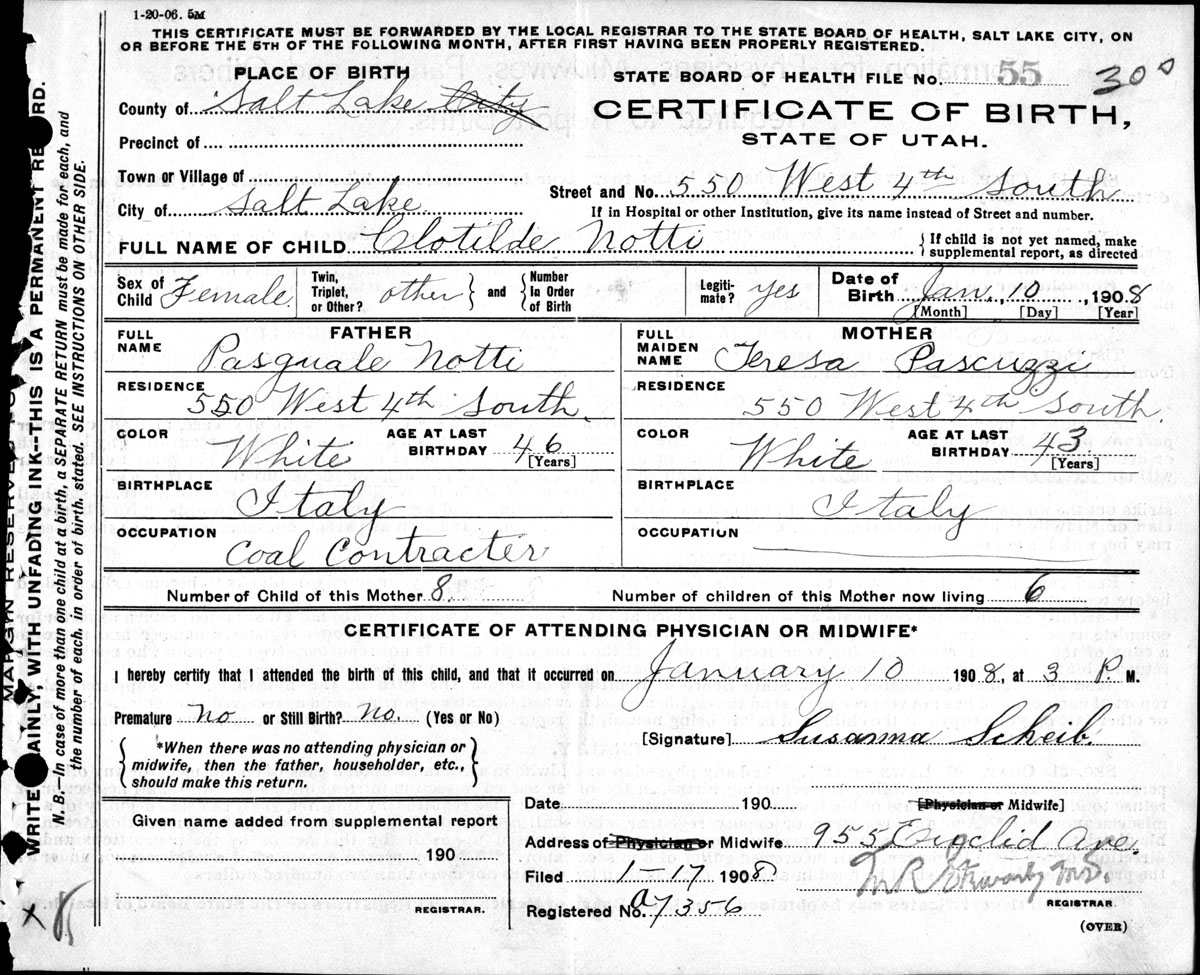 1-20-06. 5M
THIS CERTIFICATE MUST BE FORWARDED BY THE LOCAL REGISTRAR TO THE STATE BOARD OF HEALTH, SALT LAKE CITY, ON
OR BEFORE THE 5TH OF THE FOLLOWING MONTH, AFTER FIRST HAVING BEEN PROPERLY REGISTERED.
PLACE OF BIRTH
County of Salt Lake City
Precinct of
Town or Village of
City of Salt Lake
STATE BOARD OF HEALTH FILE No. 55 300
CERTIFICATE OF BIRTH,
STATE OF UTAH.
Street and No. 550 West 4th South
If in Hospital or other Institution, give its name instead of Street and number.
FULL NAME OF CHILD Clotilde Notti { If child is not yet named, make
supplemental report, as directed
Sex of Child Female
Twin, Triplet, or Other? other } and { Number In Order of Birth
Legiti-mate? yes
Date of Birth Jan. 10, 1908
[Month] [Day] [Year]
FATHER
FULL NAME Pasquale Notti
RESIDENCE 550 West 4th South
COLOR White AGE AT LAST BIRTHDAY 46 [Years]
BIRTHPLACE Italy
OCCUPATION Coal Contracter
MOTHER
FULL MAIDEN NAME Teresa Pascuzzi
RESIDENCE 550 West 4th South
COLOR White AGE AT LAST BIRTHDAY 43 [Years]
BIRTHPLACE Italy
OCCUPATION
Number of Child of this Mother 8. Number of children of this Mother now living 6
CERTIFICATE OF ATTENDING PHYSICIAN OR MIDWIFE*
I hereby certify that I attended the birth of this child, and that it occurred on January 10 1908, at 3 P. M.
Premature no or Still Birth? no. (Yes or No)
{ *When there was no attending physician or
midwife, then the father, householder, etc.,
should make this return. }
[Signature] Susanna Scheib.
[Physician or Midwife]
Given name added from supplemental report
190
REGISTRAR.
Date 190
Address of Physician or Midwife 955 Euclid Ave.
Filed 1-17 1908
Registered No. a7356
REGISTRAR.
(OVER)
MARGIN RESERVED
WRITE PLAINLY, WITH UNFADING INK--THIS IS A PERMANENT RECORD.
N. B.--In case of more than one child at a birth, a SEPARATE RETURN must be made for each, and
the number of each, in order of birth, stated. SEE INSTRUCTIONS ON OTHER SIDE.